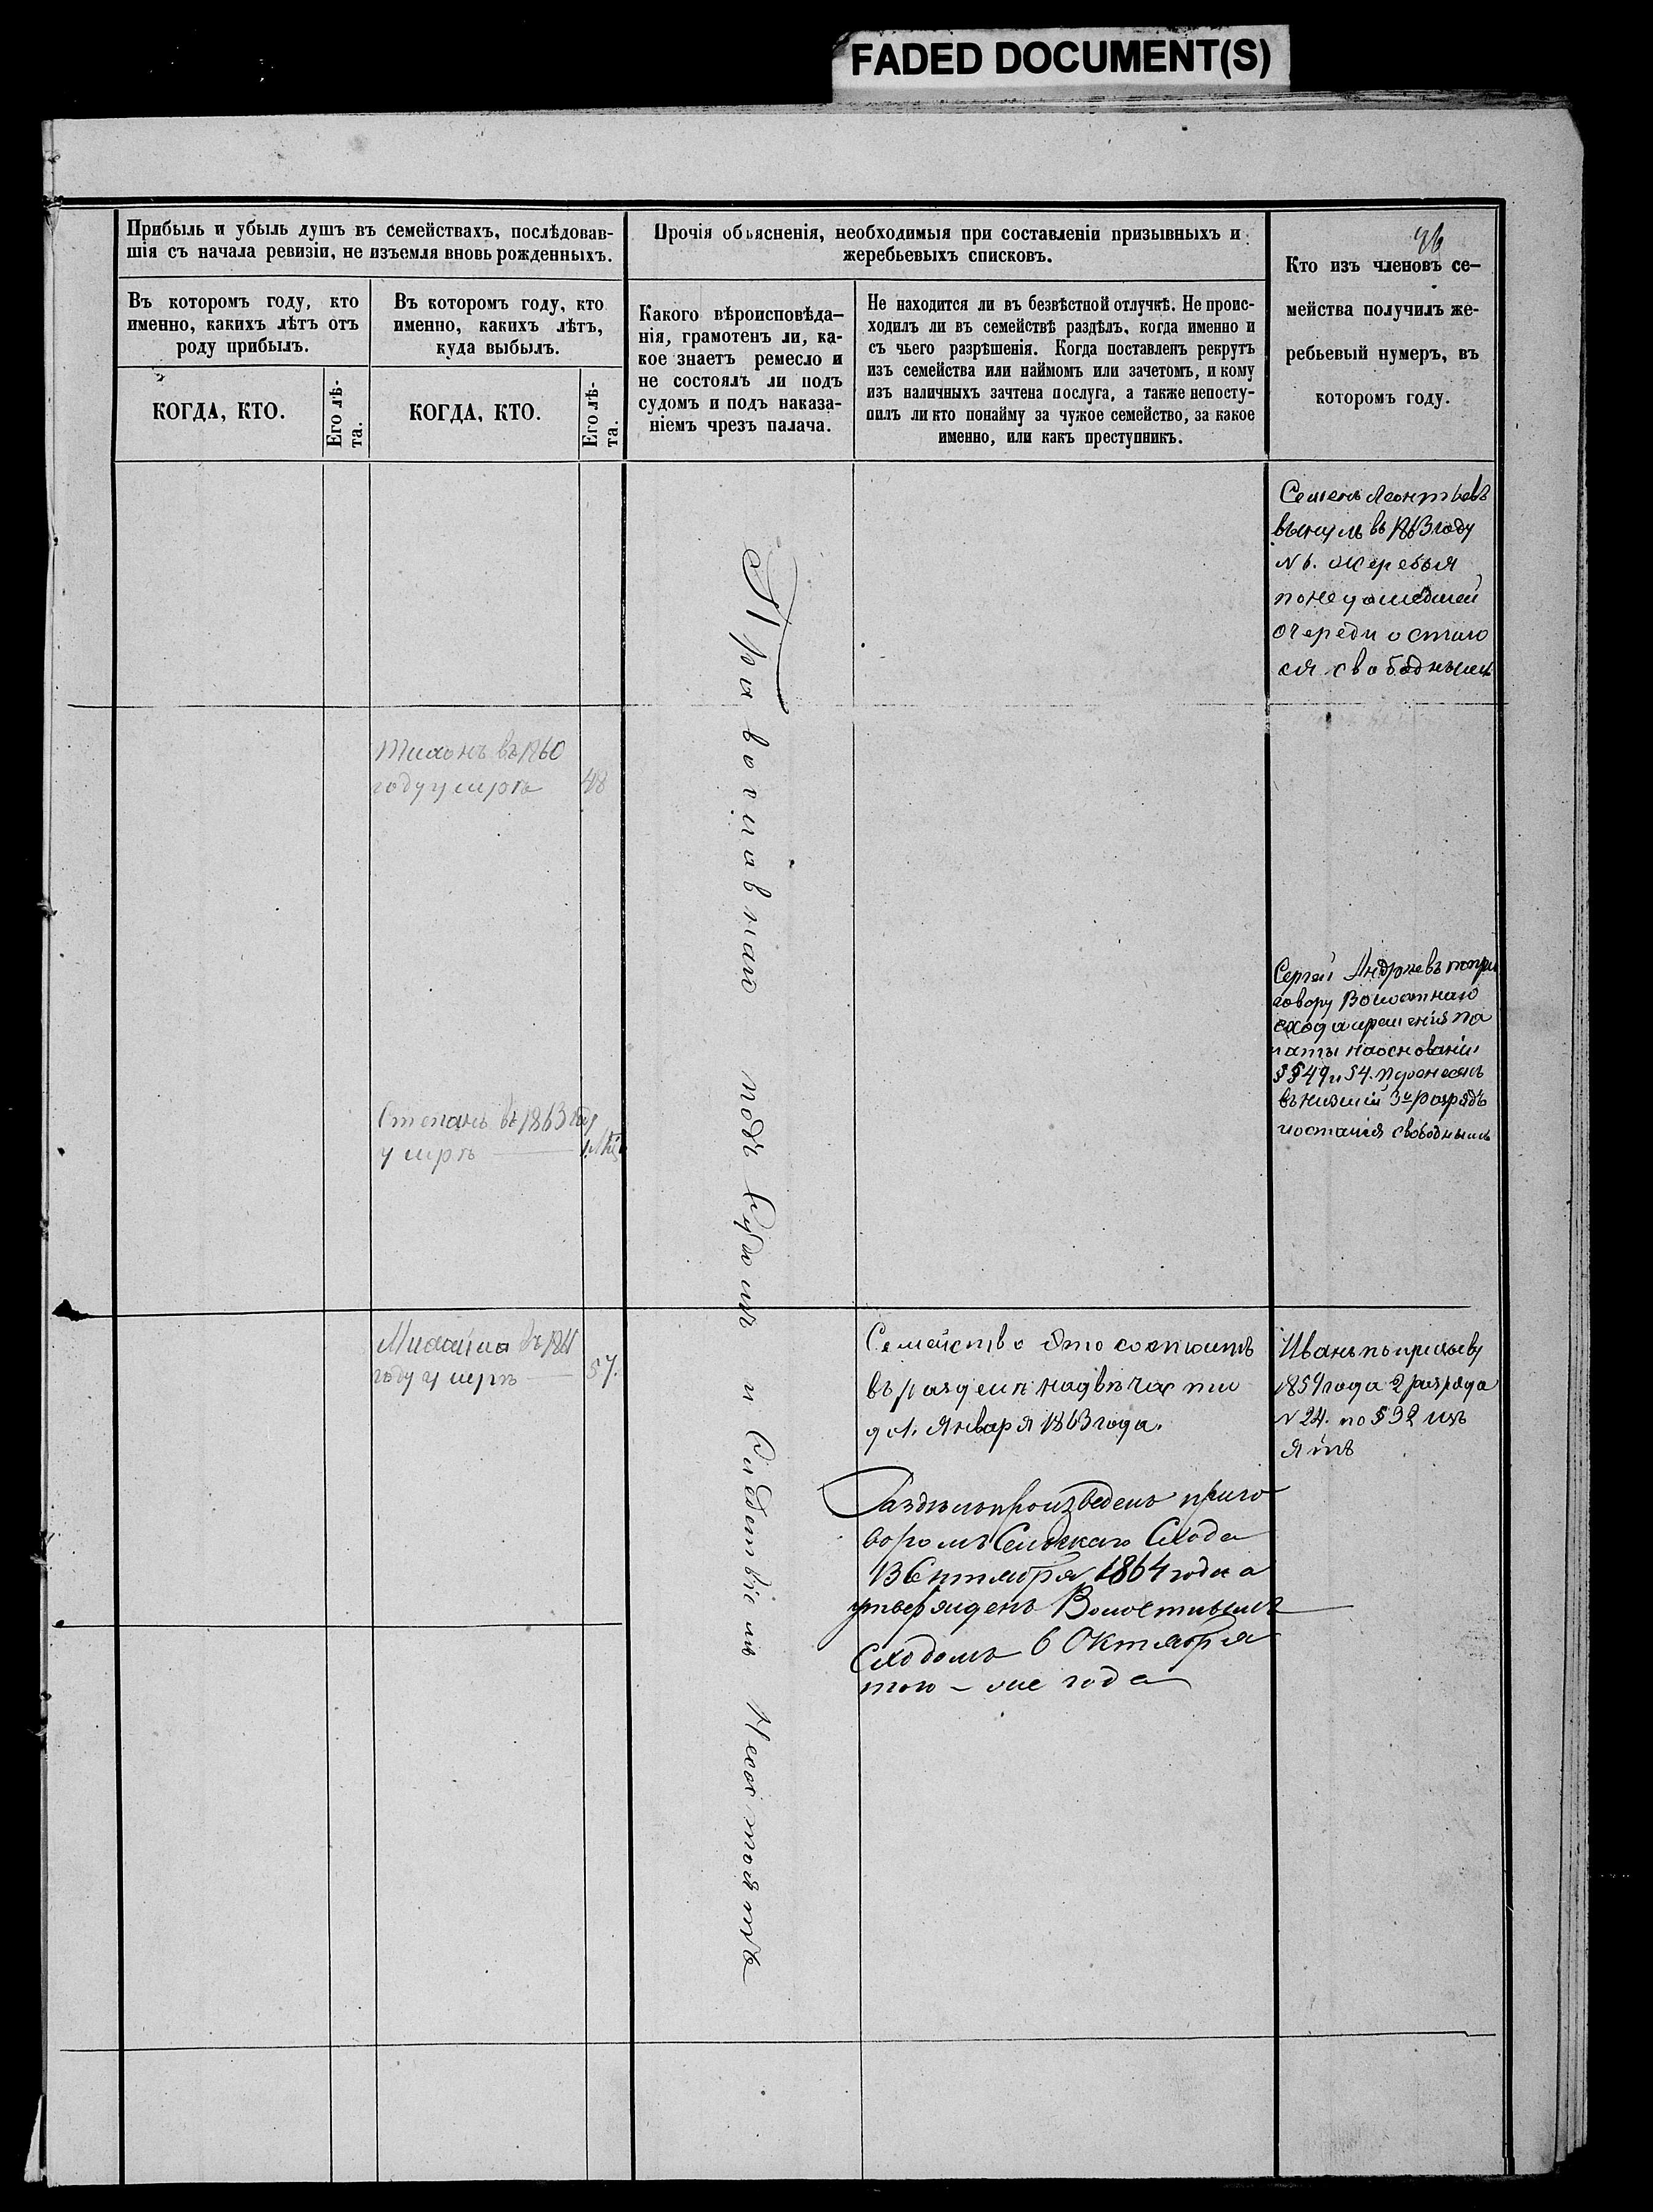 FADED DOCUMENT(S)
Прибыль и убыль душъ въ семействахъ, послѣдовав-
шія съ начала ревизіи, не изъемля вновь рожденныхъ.
Прочія объясненія, необходимыя при составленіи призывныхъ и
жеребьевыхъ списковъ.
Кто изъ членовъ се-
мейства получилъ же-
ребьевый нумеръ, въ
которомъ году.
Въ которомъ году, кто
именно, какихъ лѣтъ отъ
роду прибылъ.
Въ которомъ году, кто
именно, какихъ лѣтъ,
куда выбылъ.
Какого вѣроисповѣда-
нія, грамотенъ ли, ка-
кое знаетъ ремесло и
не состоялъ ли подъ
судомъ и подъ наказа-
ніемъ чрезъ палача.
Не находится ли въ безвѣстной отлучкѣ. Не проис-
ходилъ ли въ семействѣ раздѣлъ, когда именно и
съ чьего разрѣшенія. Когда поставленъ рекрутъ
изъ семейства или наймомъ или зачетомъ, и кому
изъ наличныхъ зачтена послуга, а также непосту-
пилъ ли кто понайму за чужое семейство, за какое
именно, или какъ преступникъ.
КОГДА, КТО.
Его лѣ-
та.
КОГДА, КТО.
Его лѣ-
та.
Семенъ Леонтьевъ
вынулъ въ 1863 году
№ 6. жеребья
понедошедшей
очереди остал
ся свободнымъ
Тихонъ въ 1860
году умрѣ 48
Сергей Андреевъ попри
говору Волостнаго
схода
латы наоснованіи
§§ 49 и 54. перенесенъ
въ низшій 3й разрядъ
иостался свободнымъ
Степанъ въ 1863 году
умрѣ
Православнаго подъ Судомъ и Слѣдствіемъ Несостоятъ
Михайла въ
году умрѣ 57.
Семейство это состоитъ
въ разделѣ надвѣ части
до 1. Января 1863 года.
Раздѣлъ произведенъ приго
воромъ Сельскаго Схода
13 Сентября 1864 года а
утвержденъ Волостнымъ
Сходомъ 6 Октября
того-же года
Иванъ попризыву
1859 года 2 разряда
№ 24. по § 32